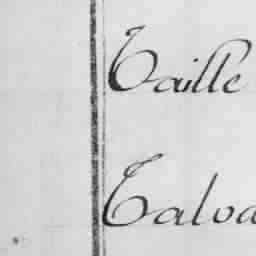 Taille
Talva